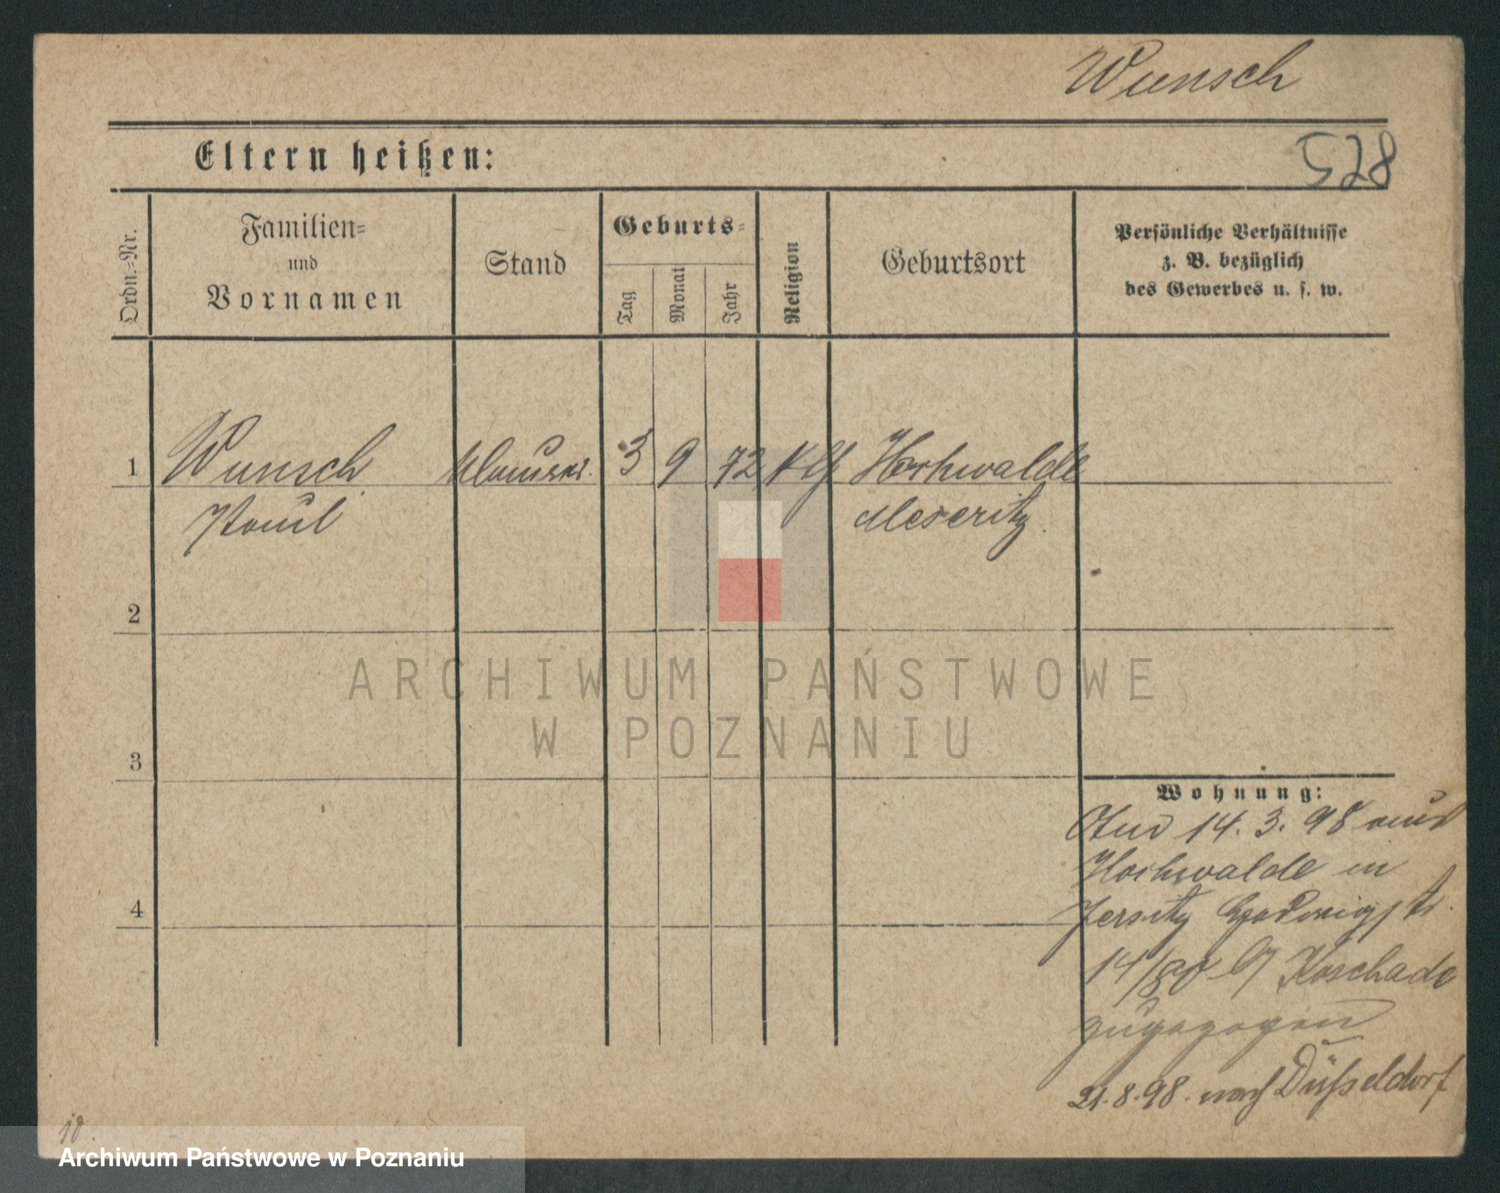 Wunsch
528
Eltern heißen:
Ordn.-Nr.
Familien-
und
Vornamen
Stand
Geburts-
Tag
Monat
Jahr
Religion
Geburtsort
Persönliche Verhältnisse
z. B. bezüglich
des Gewerbes u. s. w.
1
Wunsch
3
9
72
Hochwalde
Paul
Meseritz
2
3
4
Wohnung:
14. 3. 98 aus
Hochwalde in
Jersitz
14/ Koschade
zugezogen
21.8.98. nach Düsseldorf
ARCHIWUM PAŃSTWOWE
W POZNANIU
Archiwum Państwowe w Poznaniu